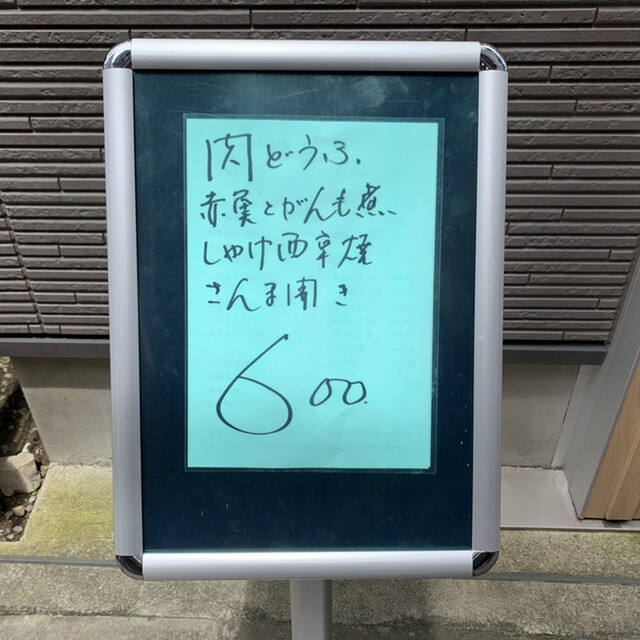 肉どうふ.
赤魚とがんも煮
しゃけ西京焼
さんま開き
600.